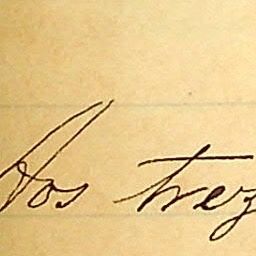 Aos trez